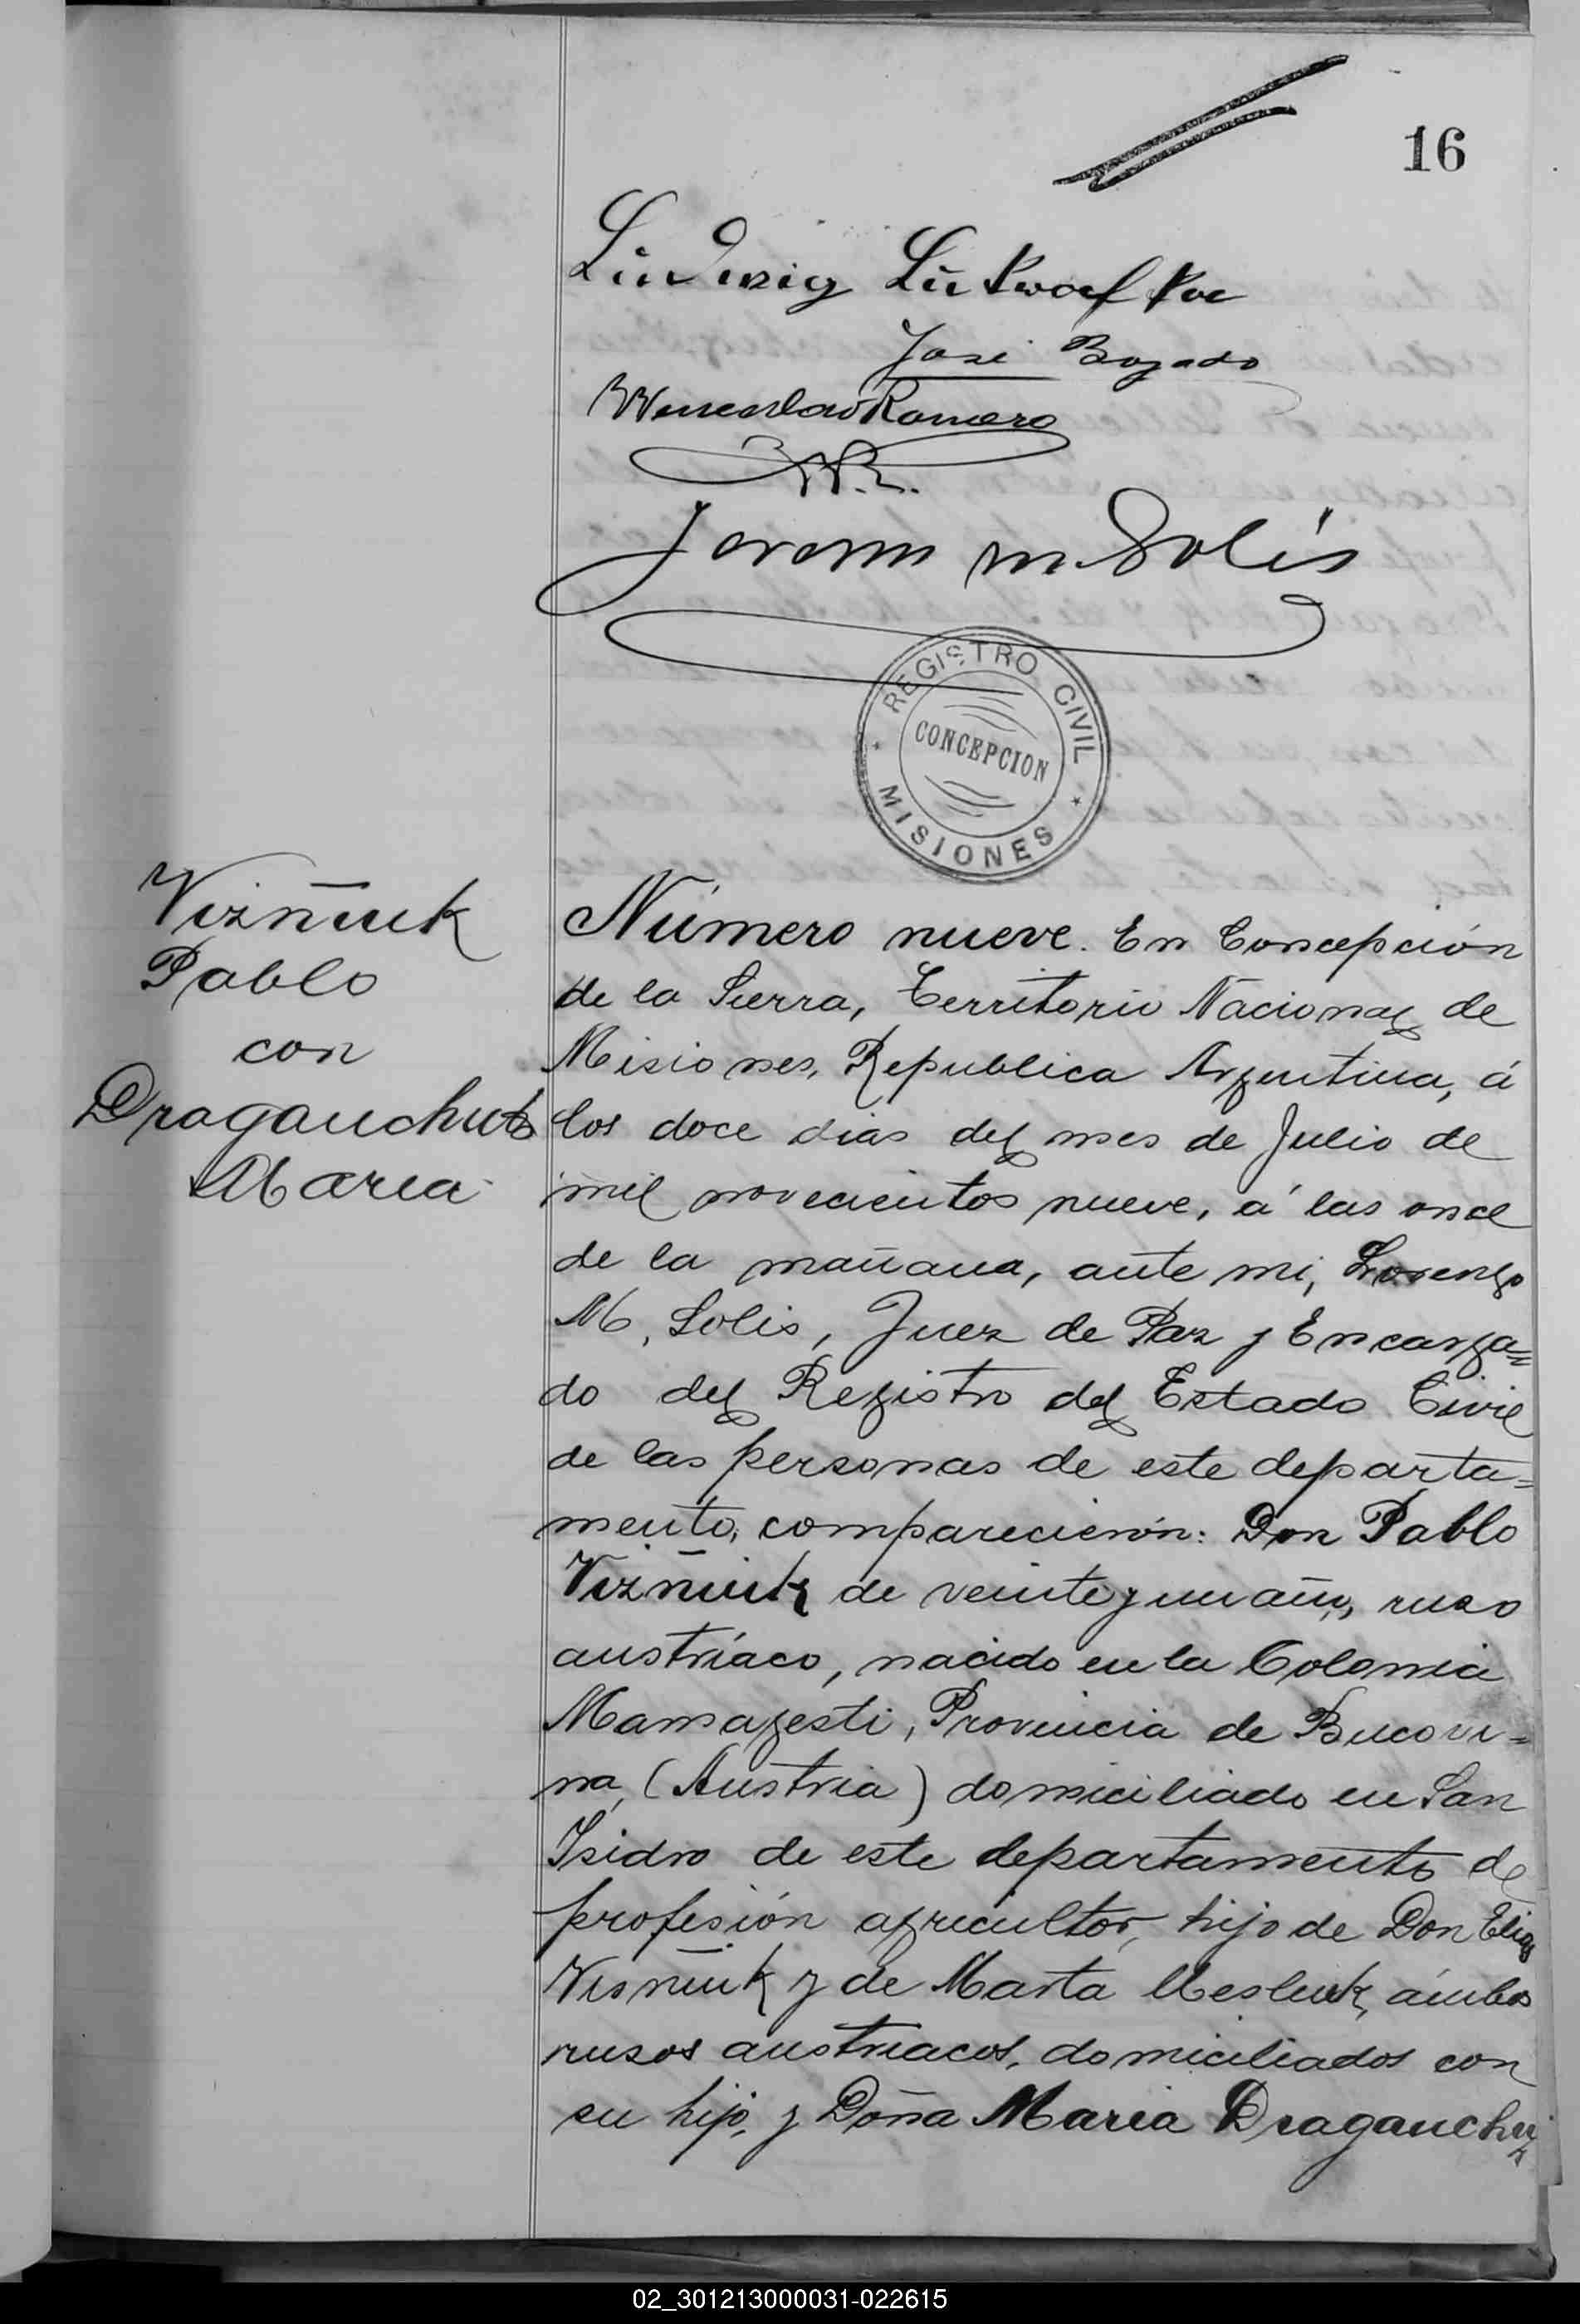 16
Ludwig Lukwafka
José Bogado
Wenceslao Romero
W.R.
Lorenzo M. Solis
REGISTRO CIVIL
CONCEPCION
MISIONES
Vizñiuk
Pablo
con
Draganchuk
Maria
Número nueve. En Concepción
de la Sierra, Territorio Nacional de
Misiones, Republica Argentina, á
los doce dias del mes de Julio de
mil novecientos nueve, á las once
de la mañana, ante mi, Lorenzo
M. Solis, Juez de Paz y Encarga=
do del Registro del Estado Civil
de las personas de este departa=
mento, comparecierón: Don Pablo
Vizñiuk de veinte y un años, ruso
austríaco, nacido en la Colonia
Mamagesti, Provincia de Bucovi=
na, (Austria) domiciliado en San
Isidro de este departamento de
profesión agricultor, hijo de Don Elias
Visñiuk y de Marta ámbos
rusos austriacos, domiciliados con
su hijo, y Doña Maria Draganchuk
02_301213000031-022615